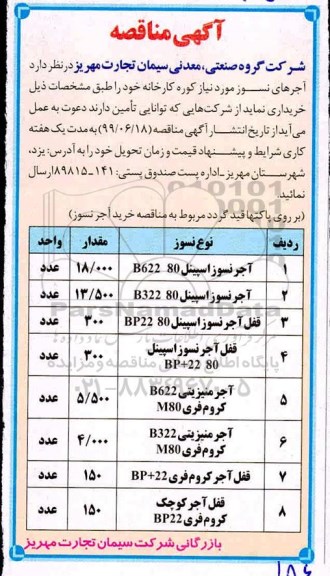 آگهی مناقصه
شرکت گروه صنعتی، معدنی سیمان تجارت مهریز در نظر دارد
آجرهای نسوز مورد نیاز کوره کارخانه خود را طبق مشخصات ذیل
خریداری نماید از شرکت‌هایی که توانایی تأمین دارند دعوت به عمل
می‌آید از تاریخ انتشار آگهی مناقصه (۹۹/۰۶/۱۸) به مدت یک هفته
کاری شرایط و پیشنهاد قیمت و زمان تحویل خود را به آدرس: یزد،
شهرستان مهریز-اداره پست صندوق پستی: ۱۴۱-۸۹۸۱۵ ارسال
نمائید.
(بر روی پاکتها قید گردد مربوط به مناقصه خرید آجر نسوز)
ردیف نوع نسوز مقدار واحد
۱ آجر نسوز اسپینل 80 B622 ۱۸/۰۰۰ عدد
۲ آجر نسوز اسپینل 80 B322 ۱۳/۵۰۰ عدد
۳ قفل آجر نسوز اسپینل 80 BP22 ۳۰۰ عدد
۴ قفل آجر نسوز اسپینل
80 BP+22 ۳۰۰ عدد
۵ آجر منیزیتی B622
کروم فری M80 ۵/۵۰۰ عدد
۶ آجر منیزیتی B322
کروم فری M80 ۴/۰۰۰ عدد
۷ قفل آجر کروم فری BP+22 ۱۵۰ عدد
۸ قفل آجر کوچک
کروم فری BP22 ۱۵۰ عدد
بازرگانی شرکت سیمان تجارت مهریز
ParsNamadData
پایگاه اطلاع رسانی مناقصه و مزایده
۰۲۱-۸۸۳۴۹۶۷۰-۵